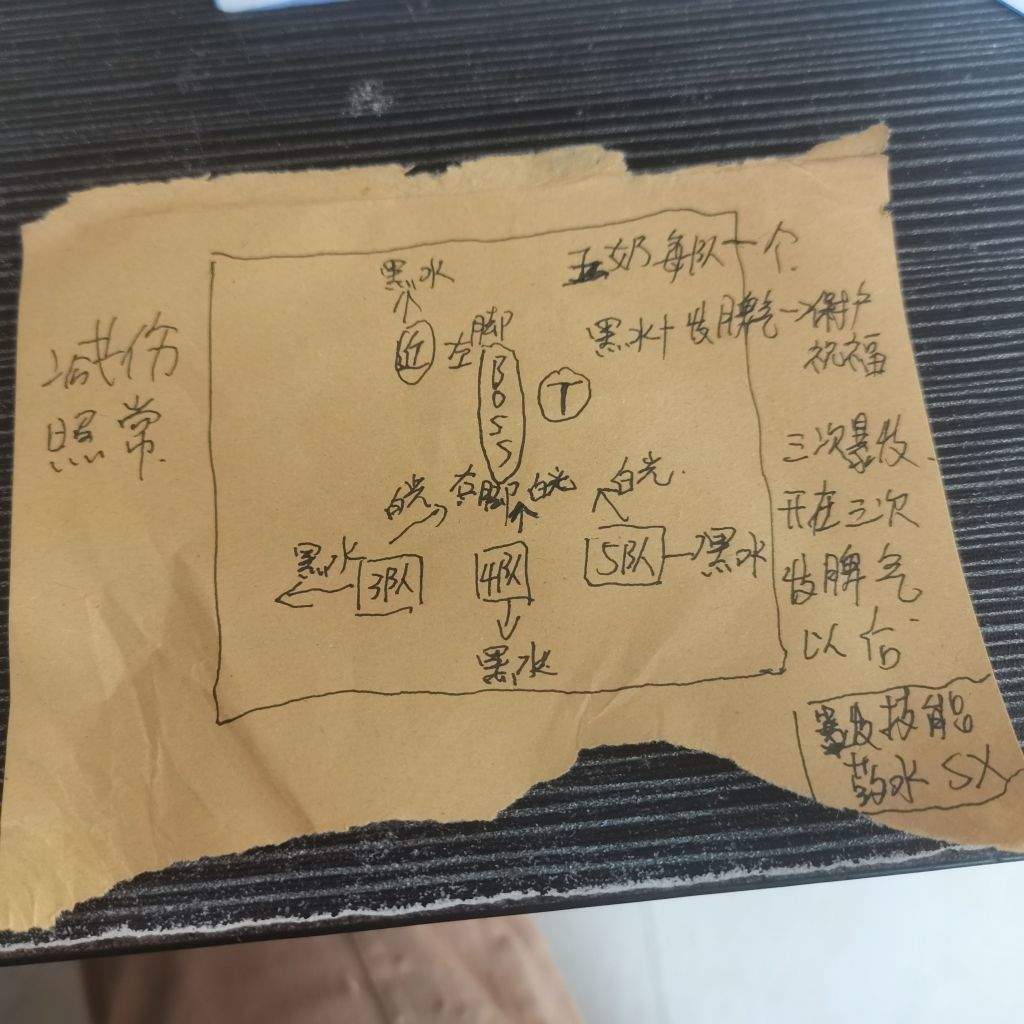 五奶每队一个
黑水
黑水+发脾气→保护
祝福
减伤
照常
近
左脚
BOSS
T
三次暴发
开在三次
发脾气
以后
白光
右脚
白光
白光
黑水
3队
4队
5队
黑水
黑水
暴发技能
药水 SX